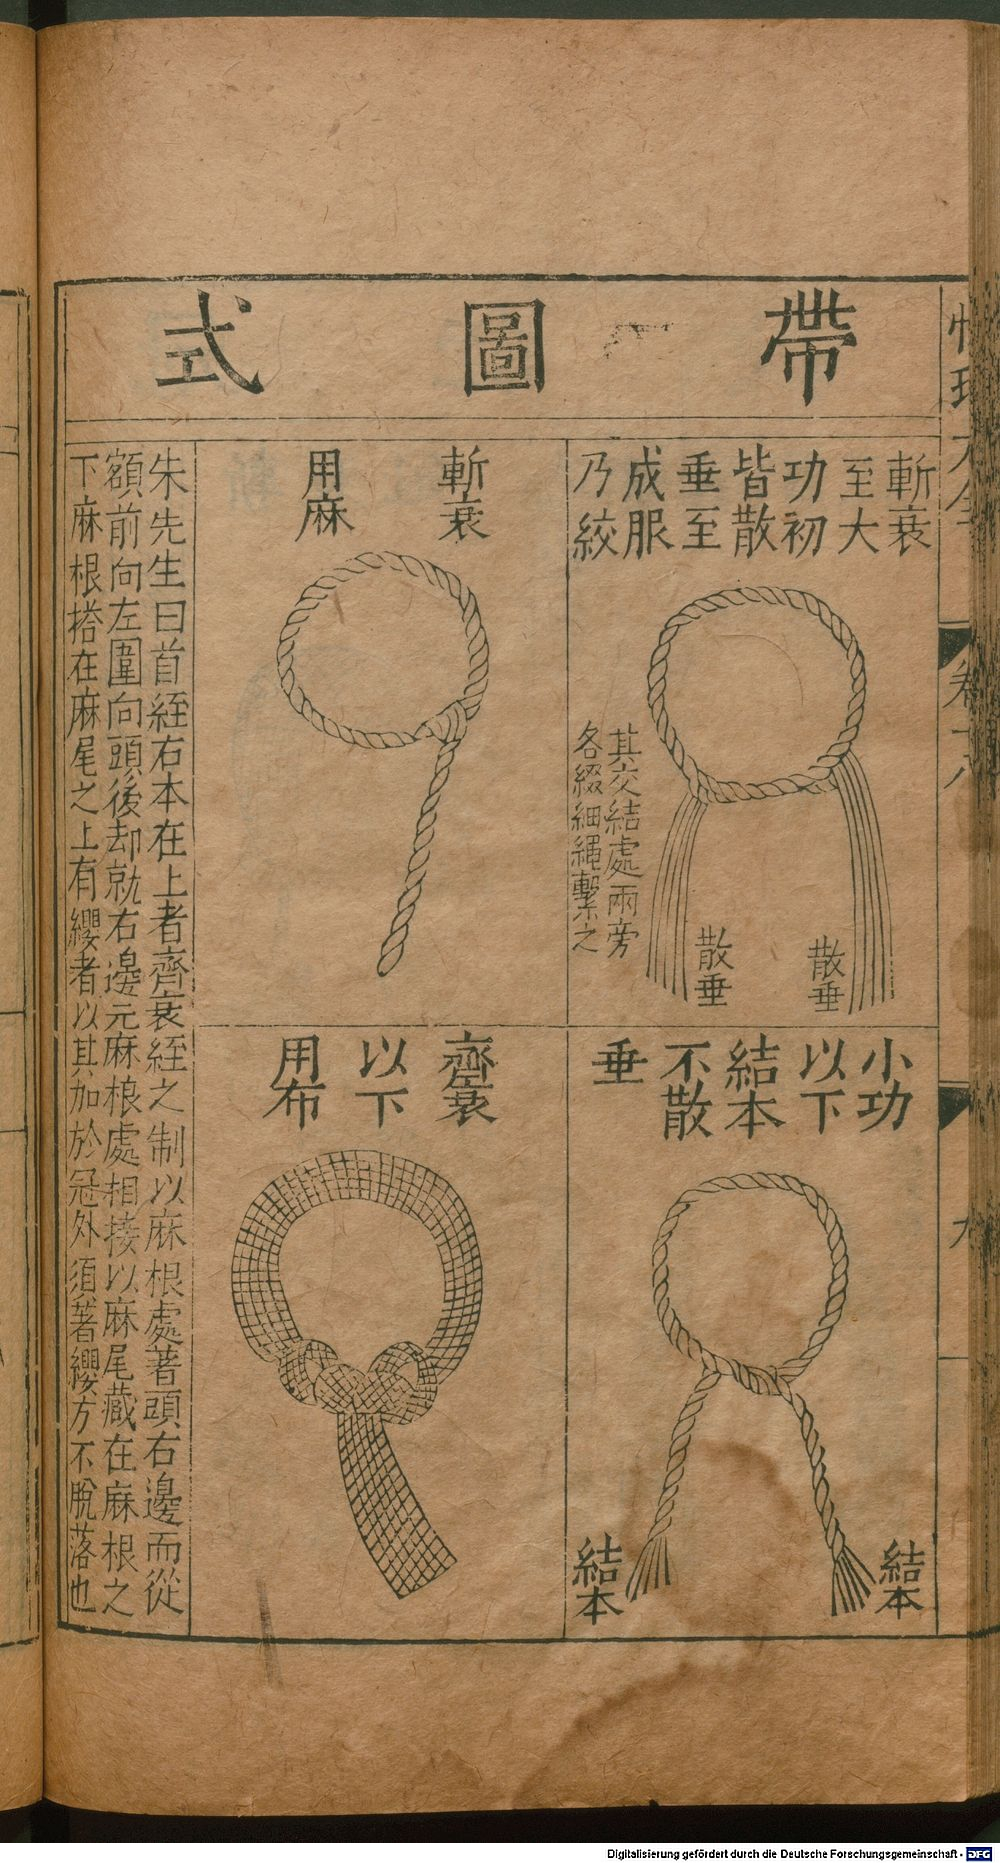 帶圖式
斬衰
至大
功初
皆散
垂至
成服
乃絞
其交結處兩旁
各綴細繩繫之
散垂
散垂
小功
以下
結本
不散
垂
結本
結本
斬衰
用麻
齊衰
以下
用布
朱先生曰首絰右本在上者齊衰絰之制以麻根處著頭右邊而從
額前向左圍向頭後却就右邊元麻根處相接以麻尾藏在麻根之
下麻根搭在麻尾之上有纓者以其加於冠外須著纓方不脫落也
性理大全
卷十八
九
Digitalisierung gefördert durch die Deutsche Forschungsgemeinschaft - DFG